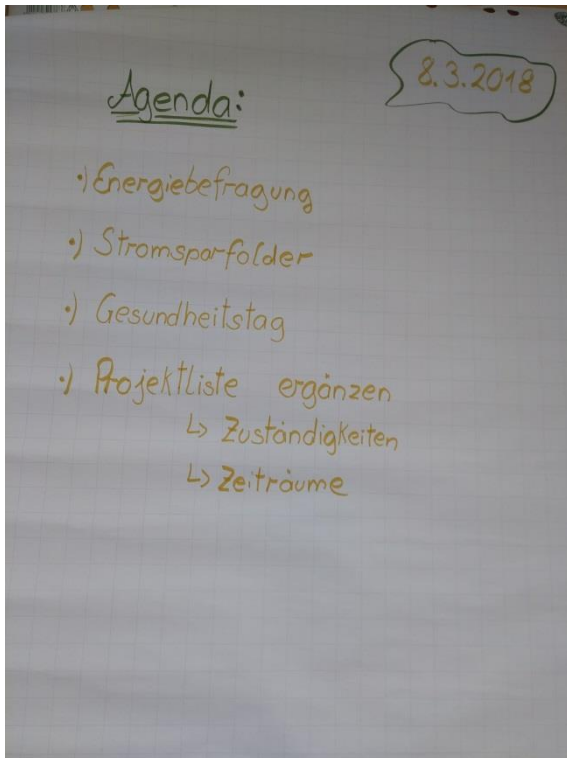 8.3.2018
Agenda:
•) Energiebefragung
•) Stromsparfolder
•) Gesundheitstag
•) Projektliste ergänzen
↳ Zuständigkeiten
↳ Zeiträume